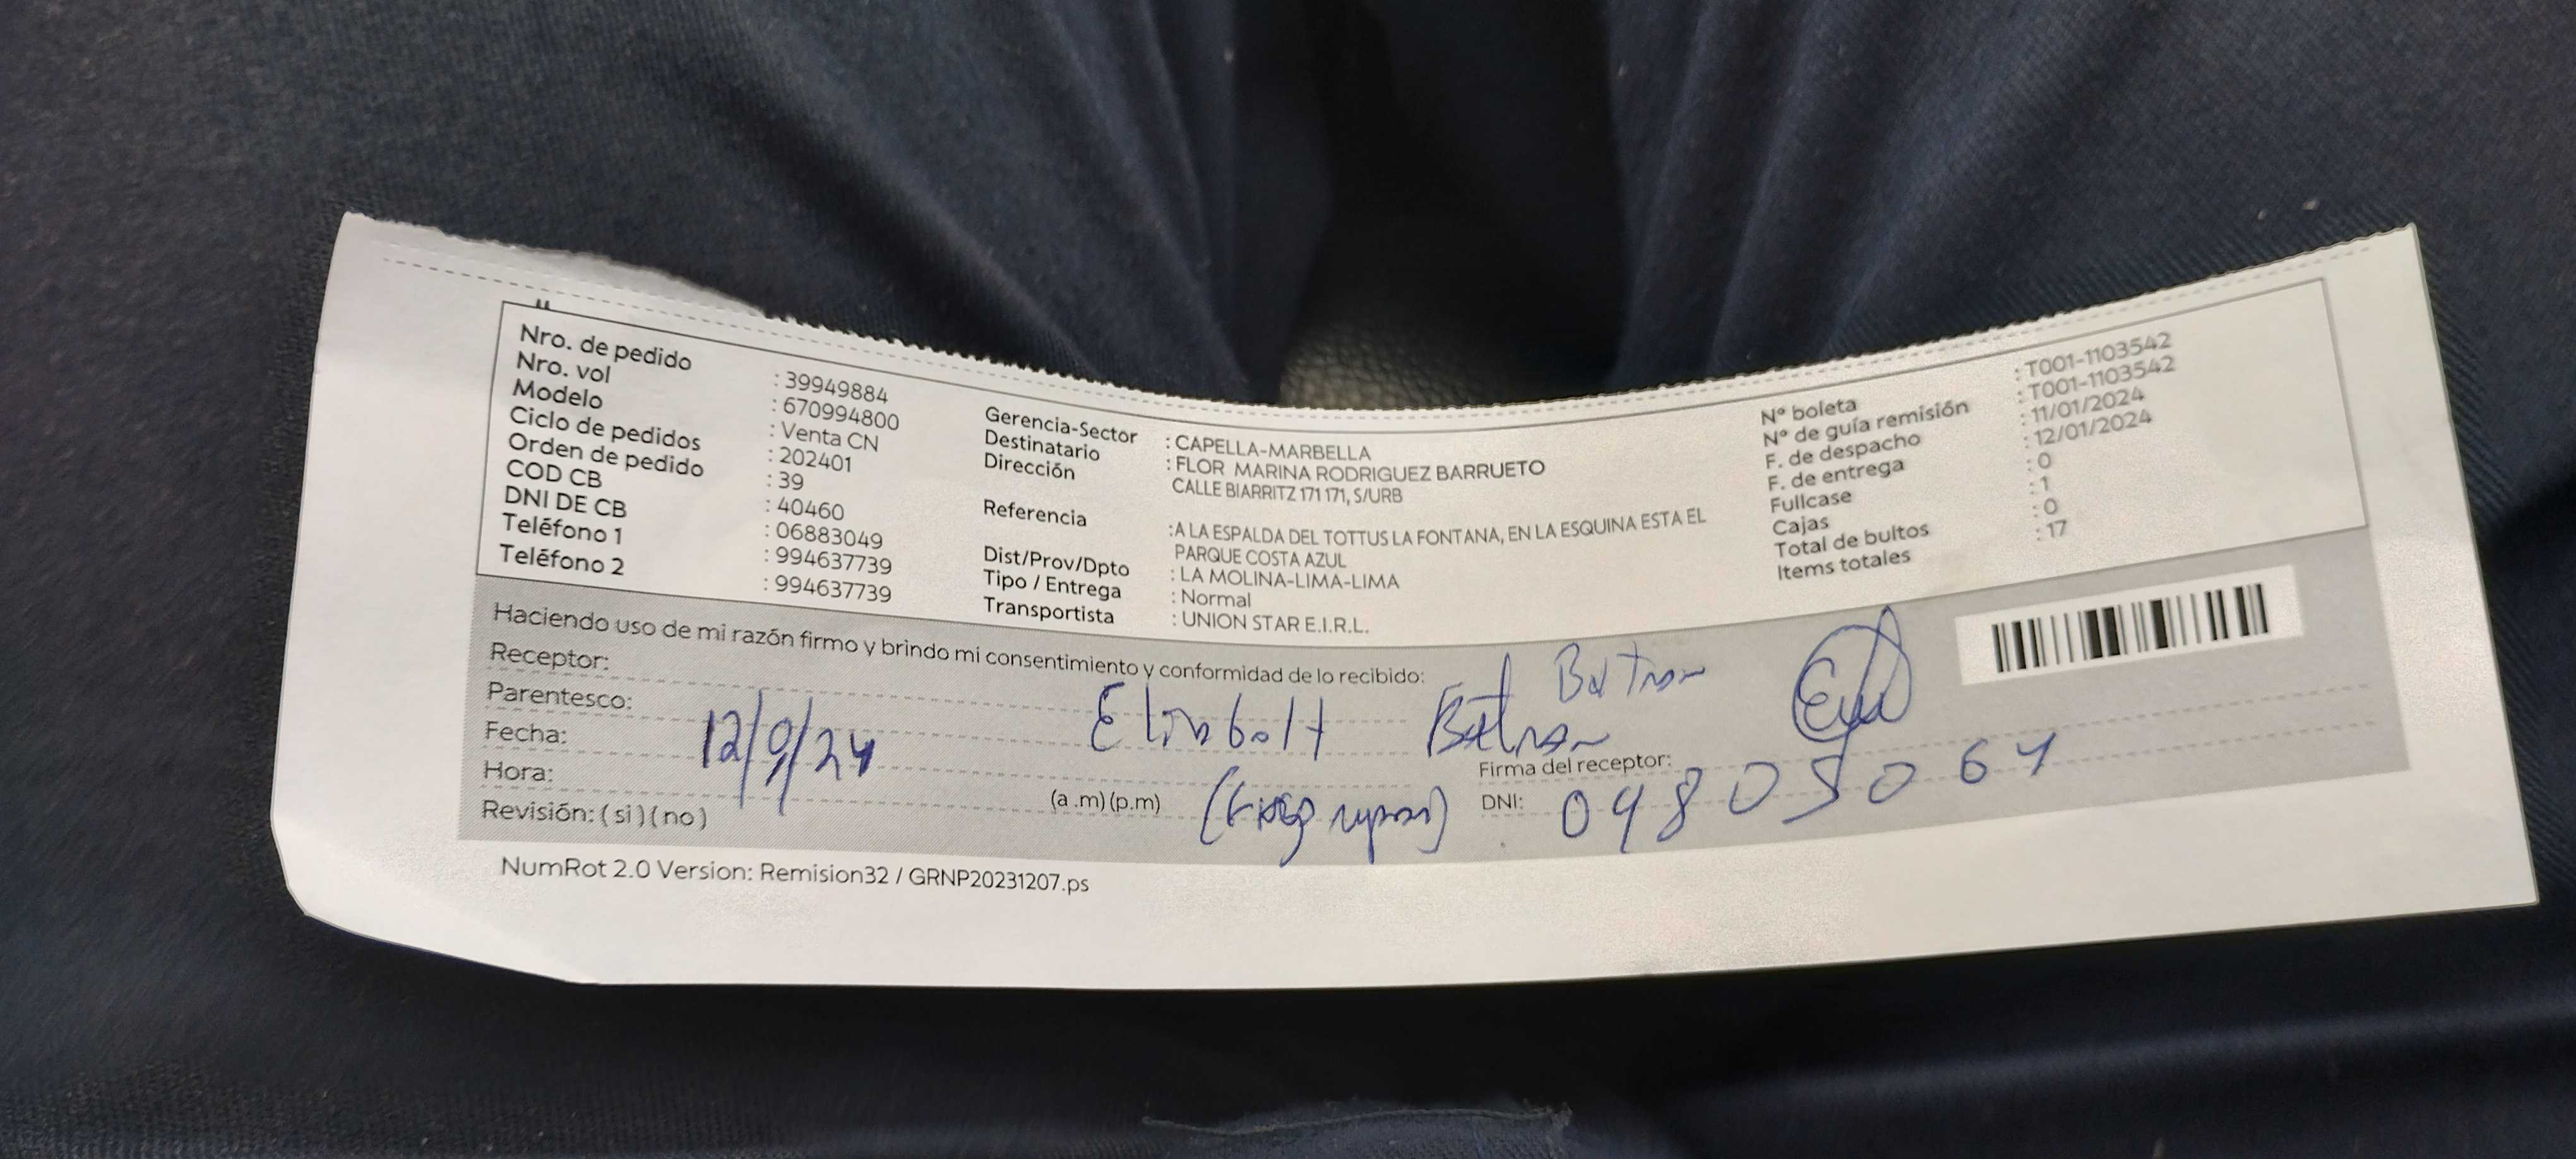 Nro. de pedido : 39949884
Nro. vol : 670994800
Modelo : Venta CN
Ciclo de pedidos : 202401
Orden de pedido : 39
COD CB : 40460
DNI DE CB : 06883049
Teléfono 1 : 994637739
Teléfono 2 : 994637739
Gerencia-Sector : CAPELLA-MARBELLA
Destinatario : FLOR MARINA RODRIGUEZ BARRUETO
Dirección CALLE BIARRITZ 171 171, S/URB
Referencia :A LA ESPALDA DEL TOTTUS LA FONTANA, EN LA ESQUINA ESTA EL
PARQUE COSTA AZUL
Dist/Prov/Dpto : LA MOLINA-LIMA-LIMA
Tipo / Entrega : Normal
Transportista : UNION STAR E.I.R.L.
Nº boleta : T001-1103542
Nº de guía remisión : T001-1103542
F. de despacho : 11/01/2024
F. de entrega : 12/01/2024
Fullcase : 0
Cajas : 1
Total de bultos : 0
Items totales : 17
Haciendo uso de mi razón firmo y brindo mi consentimiento y conformidad de lo recibido:
Receptor:
Parentesco:
Fecha:
Hora: (a .m) (p.m)
Revisión: ( si ) ( no )
Firma del receptor:
DNI:
NumRot 2.0 Version: Remision32 / GRNP20231207.ps